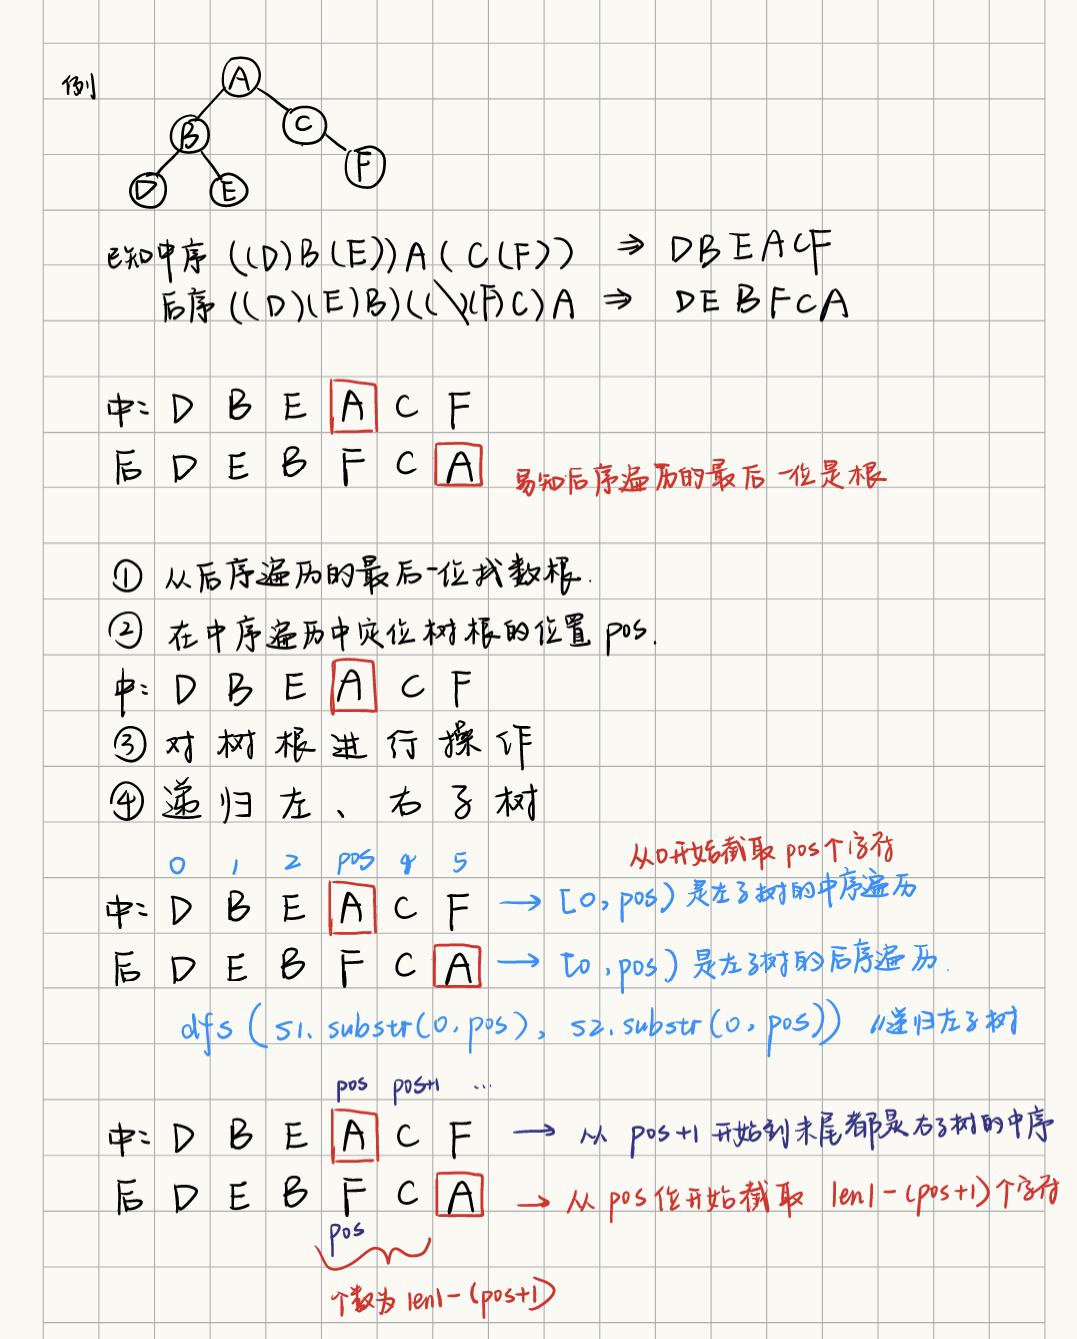 例
A
B C
D E F
已知中序 ((D)B(E))A(C(F)) ⇒ DBEACF
后序 ((D)(E)B)((\)(F)C)A ⇒ DEBFCA
中: D B E A C F
后 D E B F C A 易知后序遍历的最后一位是根
① 从后序遍历的最后一位找数根.
② 在中序遍历中定位树根的位置 pos.
中: D B E A C F
③ 对树根进行操作
④ 递归左、右子树
从0开始截取 pos个字符
0 1 2 pos 4 5
中: D B E A C F → [0, pos) 是左子树的中序遍历
后 D E B F C A → [0, pos) 是左子树的后序遍历.
dfs (s1.substr(0, pos), s2.substr(0, pos)) //递归左子树
pos pos+1 ...
中: D B E A C F → 从 pos+1 开始到末尾都是右子树的中序
后 D E B F C A → 从 pos位开始截取 len1-(pos+1)个字符
pos
个数为 len1-(pos+1)